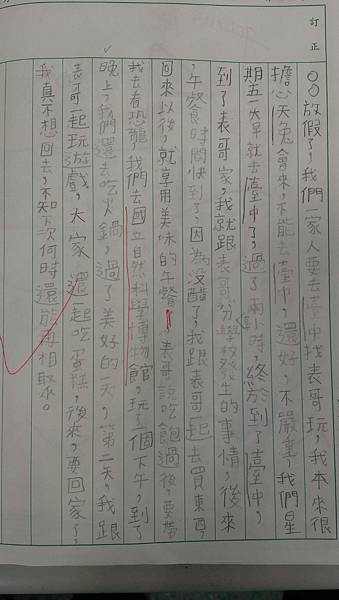 訂正
○○放假了，我們一家人要去臺中找表哥玩，我本來很
擔心天兔會來，不能去臺中，還好，不嚴重，我們星
期五一大早就去臺中了，過了兩小時，終於到了臺中，
到了表哥家，我就跟表哥分學校發生的事情，後來
，午餐時間快到了，因為沒醋了，我跟表哥一起去買東西，
回來以後，就享用美味的午餐，表哥說吃飽過後，要帶
我去看恐龍，我們去國立自然科學博物館，玩了一個下午，到了
晚上，我們還去吃火鍋，過了美好的一天，第二天，我跟
表哥一起玩遊戲，大家還一起吃蛋糕，後來，要回家了，
我真不想回去，不知下次何時還能再相聚。